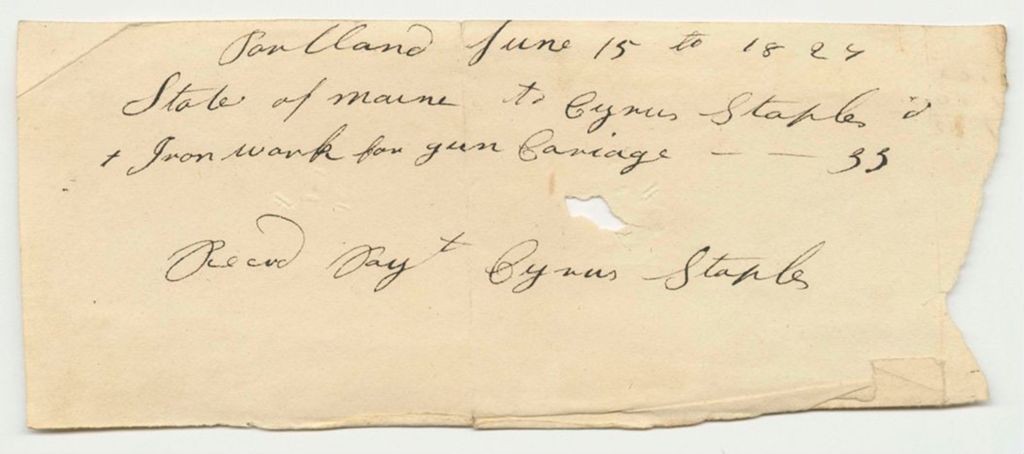 Portland June 15 to 1827
State of maine to Cyrus Staples d
+ Iron work for gun Cariage — — 33
Recevd Payt Cyrus Staples